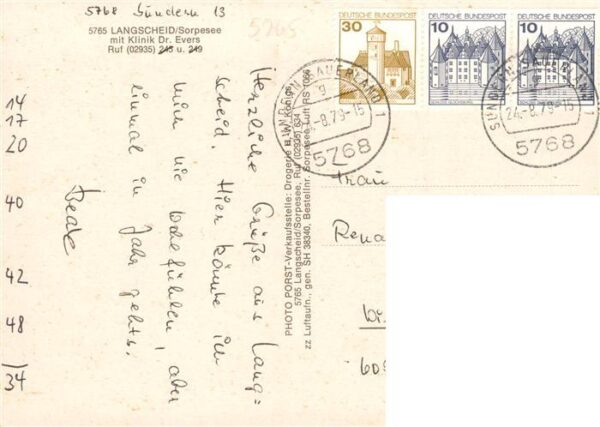 5768 Sundern 13
5765 LANGSCHEID/Sorpesee
mit Klinik Dr. Evers
Ruf (02935) 245 u. 249
5765
Herzliche Grüße aus Lang=
scheid. Hier könnte ich
mich nie wohlfühlen, aber
einmal im Jahr geht's.
Beate
14
17
20
40
42
48
134
PHOTO PORST-Verkaufsstelle: Drogerie H. W. König,
5765 Langscheid/Sorpesee, Ruf (02935) 634
zz Luftaufn., gen. SH 38340, Bestellnr. Sorpesee Luft RS 1056
30
DEUTSCHE BUNDESPOST
10
DEUTSCHE BUNDESPOST
10
DEUTSCHE BUNDESPOST
SUNDERN, SAUERLAND 1
-8.79-15
5768
SUNDERN, SAUERLAND 1
24.-8.79-15
5768
Frau
Rena
609